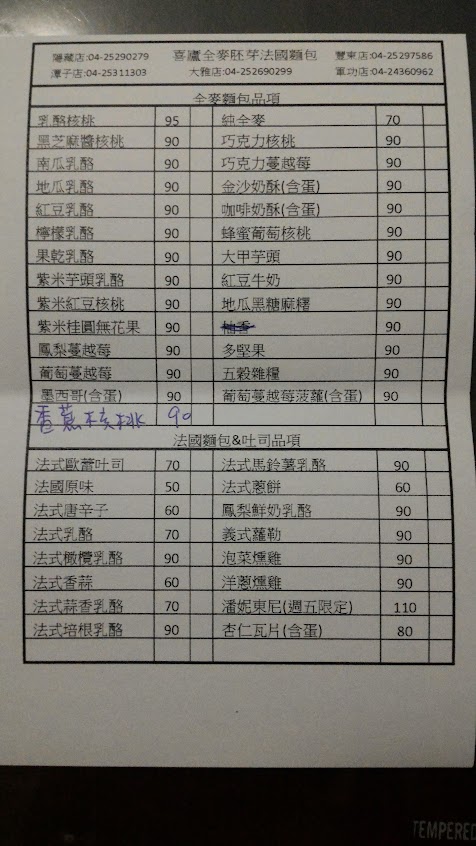 隱藏店:04-25290279 喜廬全麥胚芽法國麵包 豐東店:04-25297586
潭子店:04-25311303 大雅店:04-252690299 軍功店:04-24360962
全麥麵包品項
乳酪核桃 95 純全麥 70
黑芝麻醬核桃 90 巧克力核桃 90
南瓜乳酪 90 巧克力蔓越莓 90
地瓜乳酪 90 金沙奶酥(含蛋) 90
紅豆乳酪 90 咖啡奶酥(含蛋) 90
檸檬乳酪 90 蜂蜜葡萄核桃 90
果乾乳酪 90 大甲芋頭 90
紫米芋頭乳酪 90 紅豆牛奶 90
紫米紅豆核桃 90 地瓜黑糖麻糬 90
紫米桂圓無花果 90 柚香 90
鳳梨蔓越莓 90 多堅果 90
葡萄蔓越莓 90 五穀雜糧 90
墨西哥(含蛋) 90 葡萄蔓越莓菠蘿(含蛋) 90
香蕉核桃 90
法國麵包&吐司品項
法式歐蕾吐司 70 法式馬鈴薯乳酪 90
法國原味 50 法式蔥餅 60
法式唐辛子 60 鳳梨鮮奶乳酪 90
法式乳酪 70 義式蘿勒 90
法式橄欖乳酪 90 泡菜燻雞 90
法式香蒜 60 洋蔥燻雞 90
法式蒜香乳酪 70 潘妮東尼(週五限定) 110
法式培根乳酪 90 杏仁瓦片(含蛋) 80
TEMPERED